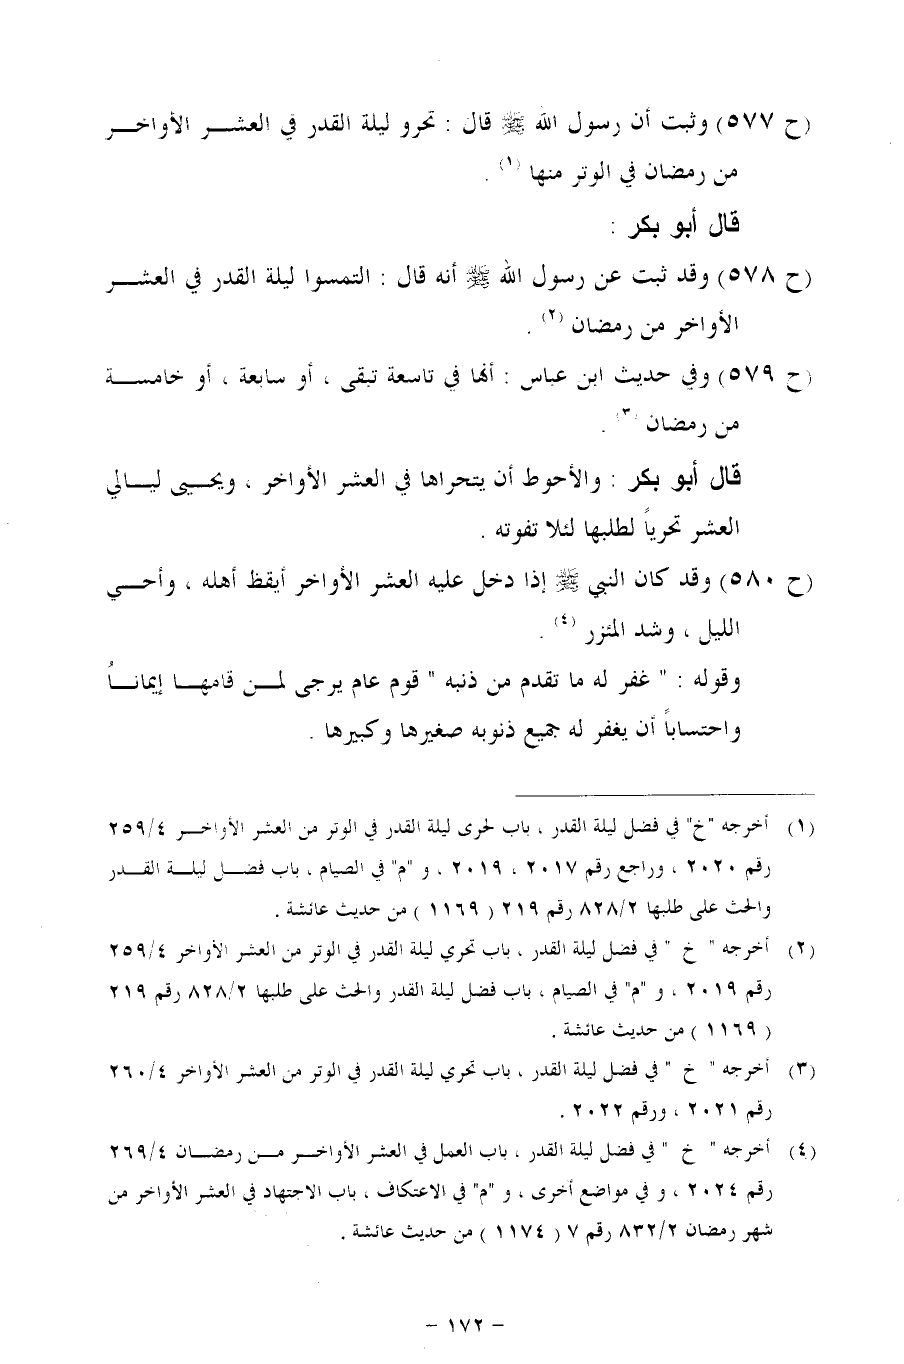 (ح ٥٧٧) وثبت أن رسول الله ﷺ قال : تحرو ليلة القدر في العشر الأواخر
من رمضان في الوتر منها (١) .
قال أبو بكر :
(ح ٥٧٨) وقد ثبت عن رسول الله ﷺ أنه قال : التمسوا ليلة القدر في العشر
الأواخر من رمضان (٢) .
(ح ٥٧٩) وفي حديث ابن عباس : أنها في تاسعة تبقى ، أو سابعة ، أو خامسة
من رمضان (٣) .
قال أبو بكر : والأحوط أن يتحراها في العشر الأواخر ، ويحيى ليالي
العشر تحرياً لطلبها لئلا تفوته .
(ح ٥٨٠) وقد كان النبي ﷺ إذا دخل عليه العشر الأواخر أيقظ أهله ، وأحي
الليل ، وشد المئزر (٤) .
وقوله : " غفر له ما تقدم من ذنبه " قوم عام يرجى لمن قامها إيماناً
واحتساباً أن يغفر له جميع ذنوبه صغيرها وكبيرها .
(١) أخرجه "خ" في فضل ليلة القدر ، باب لحرى ليلة القدر في الوتر من العشر الأواخر ٢٥٩/٤
رقم ٢٠٢٠ ، وراجع رقم ٢٠١٧ ، ٢٠١٩ ، و "م" في الصيام ، باب فضل ليلة القدر
والحث على طلبها ٨٢٨/٢ رقم ٢١٩ ( ١١٦٩ ) من حديث عائشة .
(٢) أخرجه " خ " في فضل ليلة القدر ، باب تحري ليلة القدر في الوتر من العشر الأواخر ٢٥٩/٤
رقم ٢٠١٩ ، و "م" في الصيام ، باب فضل ليلة القدر والحث على طلبها ٨٢٨/٢ رقم ٢١٩
( ١١٦٩ ) من حديث عائشة .
(٣) أخرجه " خ " في فضل ليلة القدر ، باب تحري ليلة القدر في الوتر من العشر الأواخر ٢٦٠/٤
رقم ٢٠٢١ ، ورقم ٢٠٢٢ .
(٤) أخرجه " خ " في فضل ليلة القدر ، باب العمل في العشر الأواخر من رمضان ٢٦٩/٤
رقم ٢٠٢٤ ، و في مواضع أخرى ، و "م" في الاعتكاف ، باب الاجتهاد في العشر الأواخر من
شهر رمضان ٨٣٢/٢ رقم ٧ ( ١١٧٤ ) من حديث عائشة .
- ١٧٢ -